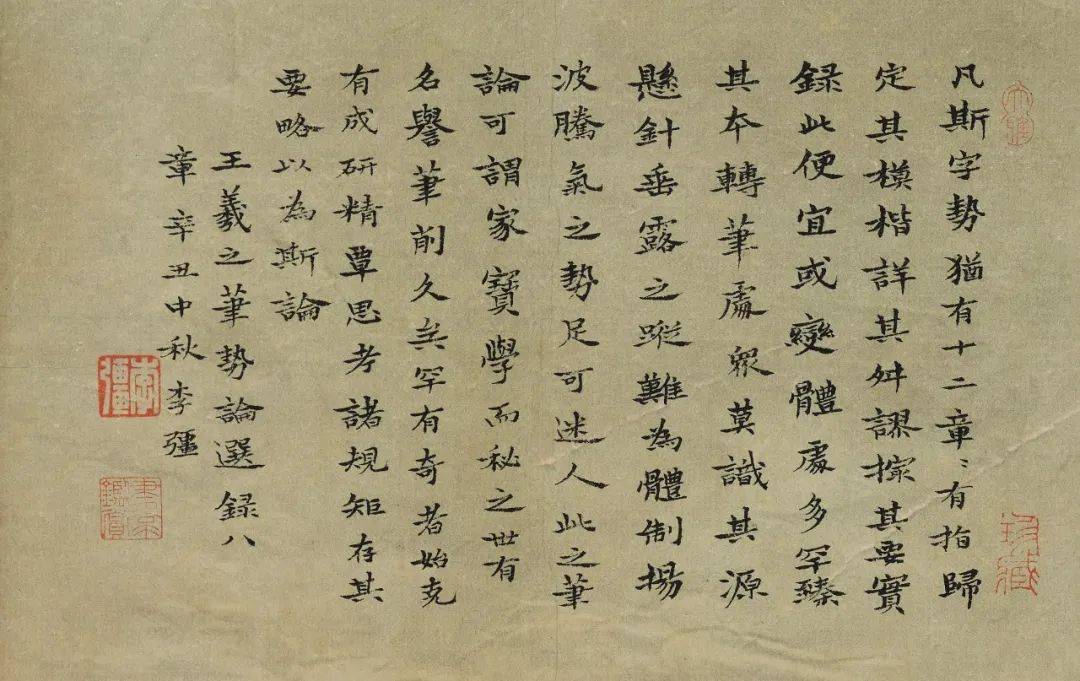 凡斯字勢猶有十二章〻有指歸
定其模楷詳其舛謬撮其要實
録此便宜或變體處多罕臻
其本轉筆處衆莫識其源
懸針垂露之蹤難為體制揚
波騰氣之勢足可迷人此之筆
論可謂家寶學而秘之世有
名譽筆削久矣罕有奇者始克
有成研精覃思考諸規矩存其
要略以為斯論
王羲之筆勢論選録八
章辛丑中秋李彊
李彊
珍藏